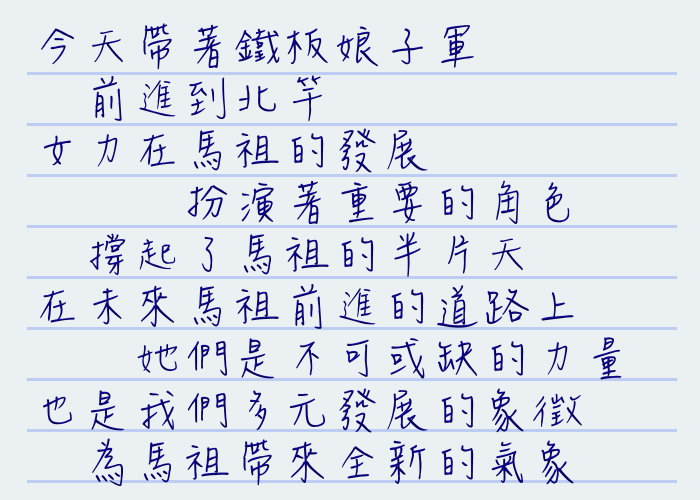 今天帶著鐵板娘子軍
前進到北竿
女力在馬祖的發展
扮演著重要的角色
撐起了馬祖的半片天
在未來馬祖前進的道路上
她們是不可或缺的力量
也是我們多元發展的象徵
為馬祖帶來全新的氣象